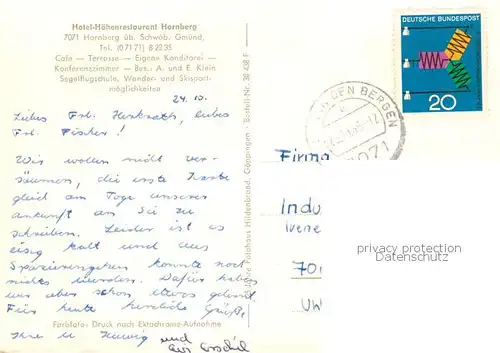 Hotel-Höhenrestaurant Hornberg
7071 Hornberg üb. Schwäb. Gmünd,
Tel. (07171) 8 22 35
Cafe — Terrasse — Eigene Konditorei —
Konferenzzimmer — Bes.: A. und E. Klein
Segelflugschule, Wander- und Skisport-
möglichkeiten
24.10.
Liebes Frl. Herkrath, liebes
Frl. Fischer!
Wir wollen nicht ver-
säumen, die erste Karte
gleich am Tage unserer
Ankunft an Sie zu
schreiben. Leider ist es
eisig kalt und aus
Spazierengehen konnte noch
nichts werden. Dafür haben
wir aber schon etwas
Für heute herzliche Grüße
Ihre und
Farbfoto: Druck nach Ektachrome-Aufnahme
Jahre Fotohaus Hildenbrand, Göppingen - Bestell-Nr. 30 428 F
DEUTSCHE BUNDESPOST
20
DEN BERGEN
7071
Firma
Indu
Irene
70
privacy protection
Datenschutz